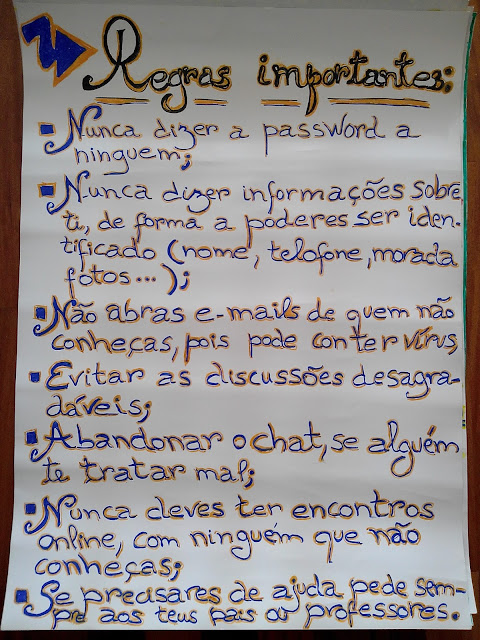 Regras importantes:
Nunca dizer a password a
ninguem;
Nunca dizer informações sobre
ti, de forma a poderes ser iden-
tificado (nome, telofone, morada
fotos...);
Não abras e-mails de quem não
conheças, pois pode conter vírus,
Evitar as discussões desagra-
dáveis;
Abandonar o chat, se alguém
te tratar mal;
Nunca deves ter encontros
online, com ninguém que não
conheças;
Se precisares de ajuda pede sem-
pre aos teus pais ou professores.